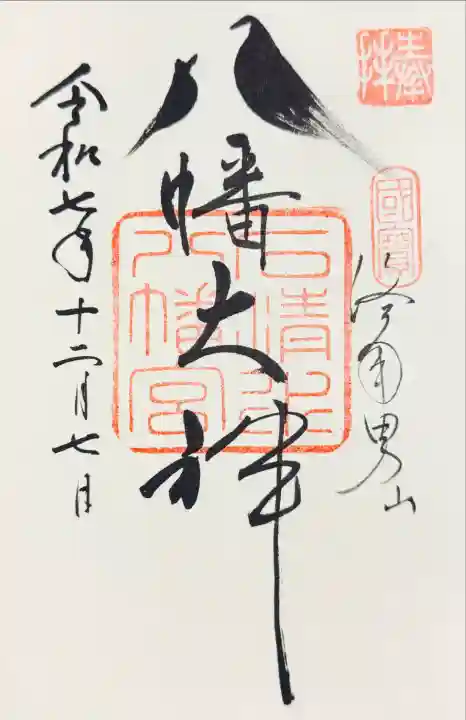 奉拝
國寶
洛南男山
八幡大神
石清水八幡宮
令和七年十二月七日